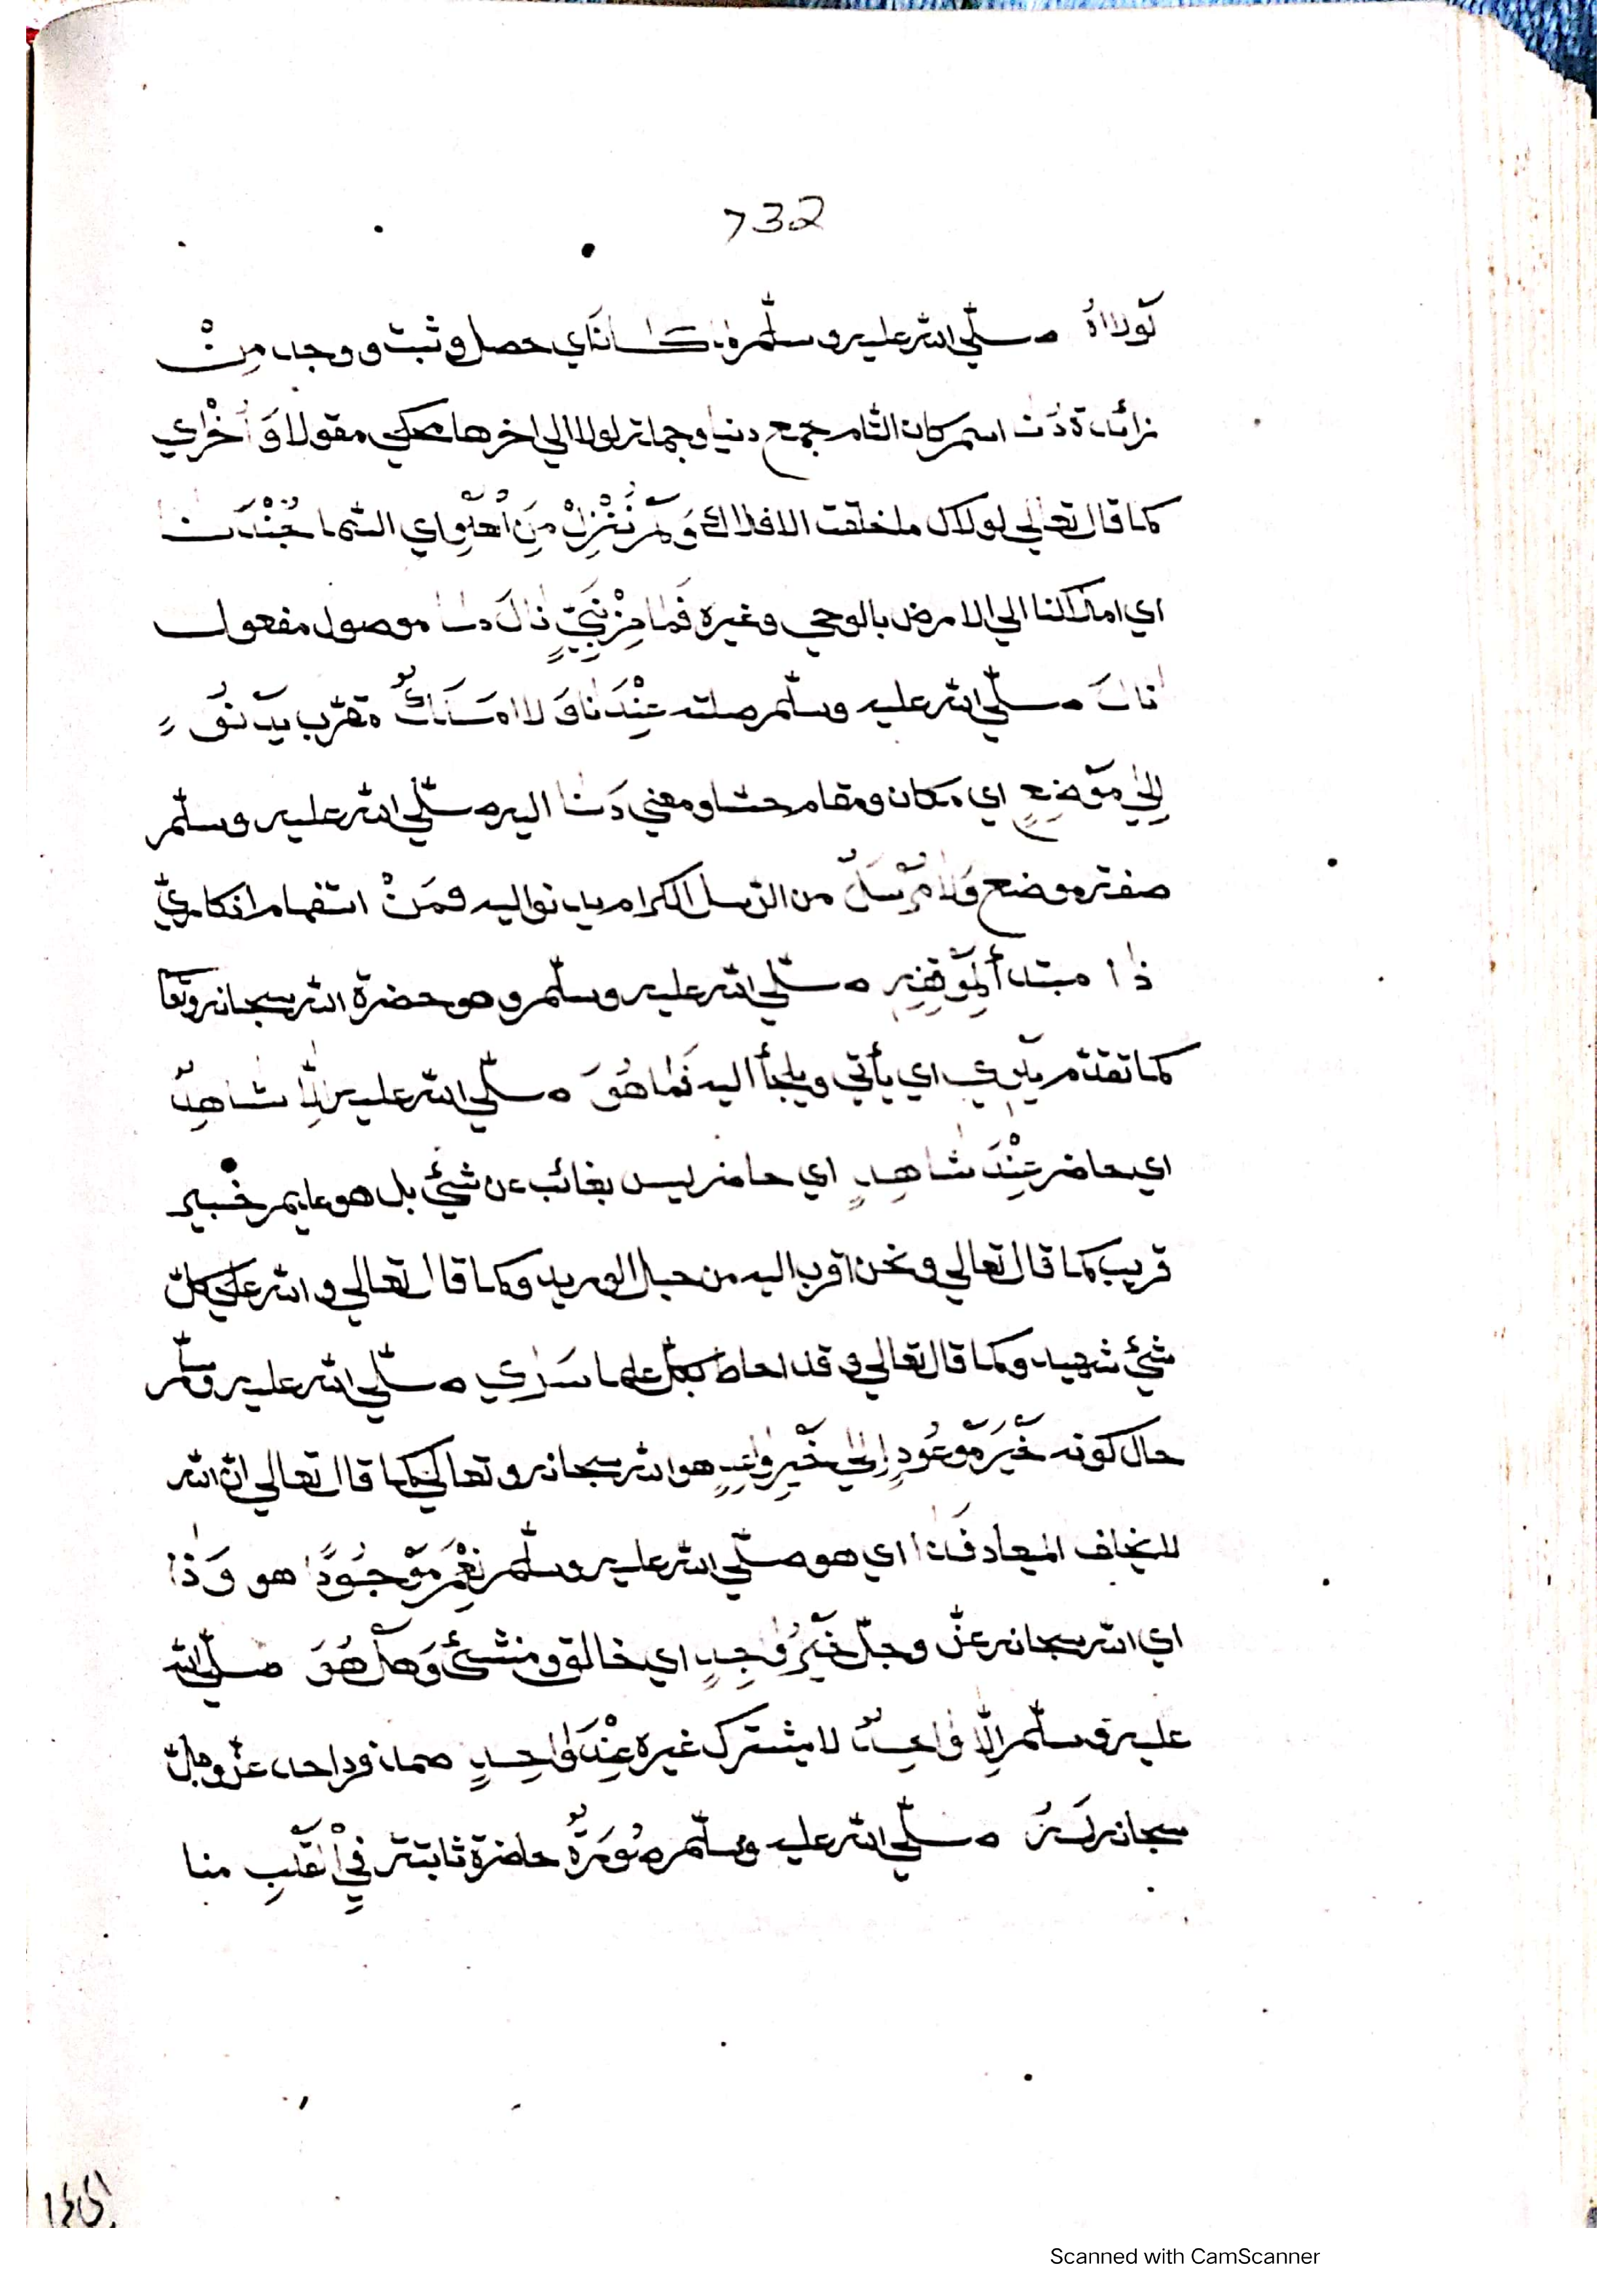 732
لَوْلَااهُ صلّي الله عليه وسلّم ما كانَ اي حصل وثبت ووجد مِنْ
زائدة دُنًا اسم كان التام جمع دنيا وجملة لولا الي اخرها محكي مقولا وَأُخْرٰي
كما قال تعالي لولاك ما خلقت الافلاك وَلَمْ نُنْزِلْ مِنَ اَهْلِ اي السّما جُنْدَنا
اي املاكنا الي الارض بالوحي وغيره فَمَا مِنْ نَبِيٍّ نٰالَ مٰا موصول مفعول
نال صلّي الله عليه وسلّم صلته عِنْدَنَا وَلَا مَلَكٌ مقرّب يَدْنُو
اِلٰي مَوْضِعٍ اي مكان ومقام حسّا ومعني دَنٰا اليه صلّي الله عليه وسلّم
صفة موضع وَلَا مُرْسَلٌ من الرّسل الكرام يدنو اليه فمَنْ استفهام انكاريّ
ذٰا مبتدأ لِمَوْقِفِهِ صلّي الله عليه وسلّم وهو حضرة الله سبحانه وتعا
كما تقدّم يَأْوِي اي يأتي ويلجأ اليه فَمٰا هُوَ صلّي الله عليه اِلّٰا شٰاهِدٌ
اي حاضر عِنْدَ شٰاهِدٍ اي حاضر ليس بغائب عن شئ بل هو عليم خبير
قريب كما قال تعالي ونحن اقرب اليه من حبل الوريد وكما قال تعالي والله علي كلّ
شئ شهيد وكما قال تعالي وقد احاط بكلّ علما سَرٰي صلّي الله عليه وسلّم
حال كونه خَيْرَ مَوْعُودٍ اِلٰي خَيْرِ وٰاعِدٍ هو الله سبحانه وتعالي كما قال تعالي انّ الله
لا يخلف الميعاد فَذٰا اي هو صلّي الله عليه وسلّم نِعْمَ مَوْجُودًا هو وَذٰا
اي الله سبحانه عزّ وجلّ خَيْرُ وٰاجِدٍ اي خالق ومنشئ وَهَلْ هُوَ صلّي الله
عليه وسلّم اِلّٰا وٰاحِدٌ لا يشترك غيره عِنْدَ وٰاحِدٍ صمد فرد احد عزّ وجلّ
سبحانه لَهُ صلّي الله عليه وسلّم صُورَةٌ حاضرة ثابتة فِي الْقَلْبِ منا
Scanned with CamScanner